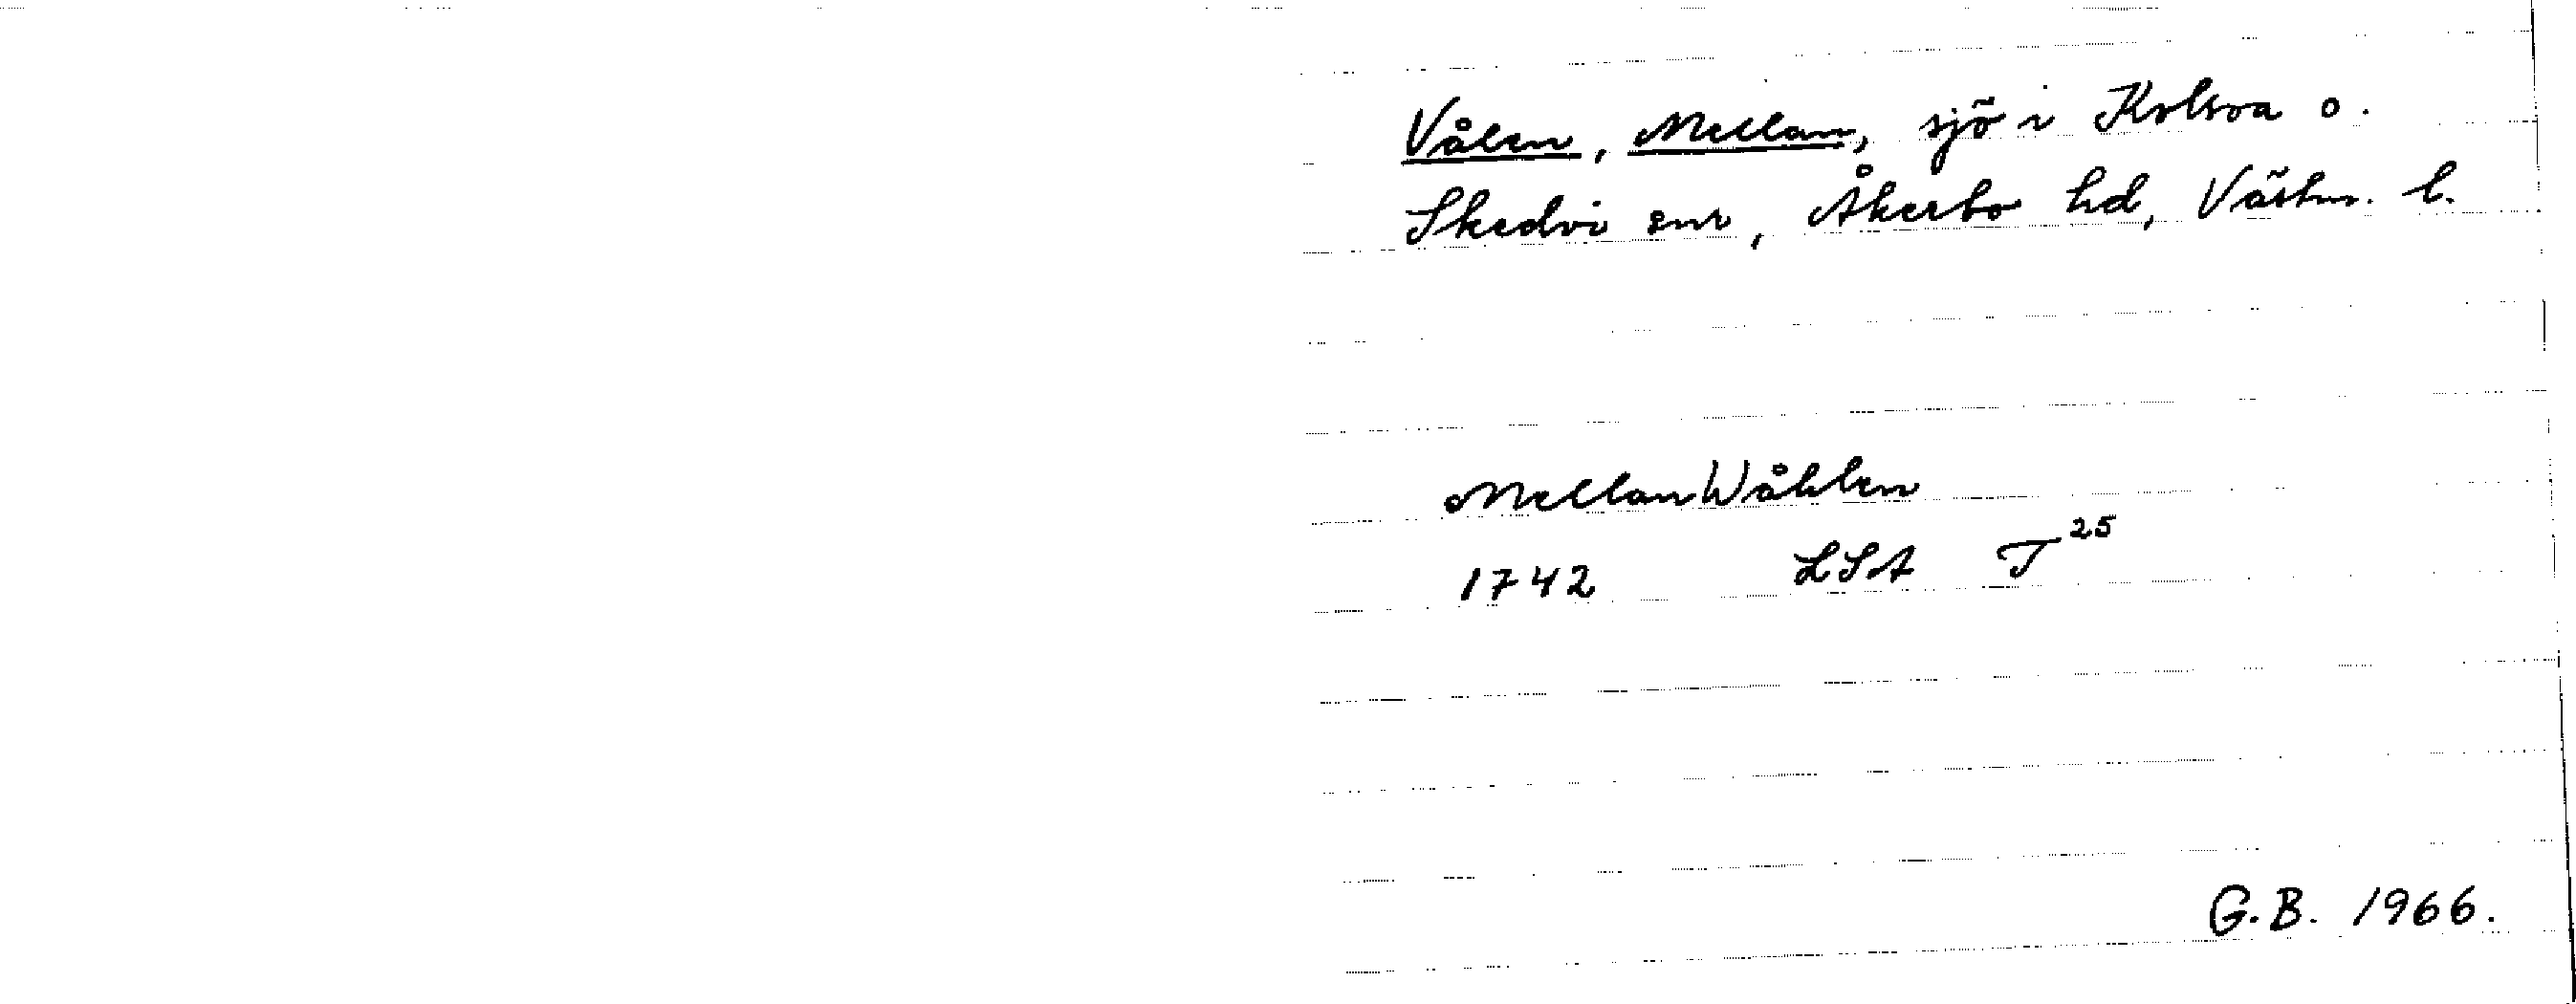 Vålen, Mellan, sjö i Kolsva o.
Skedvi snr, Åkerbo hd, Västm. l.
MellanWåhlen
1742 LSA T25
G.B. 1966.